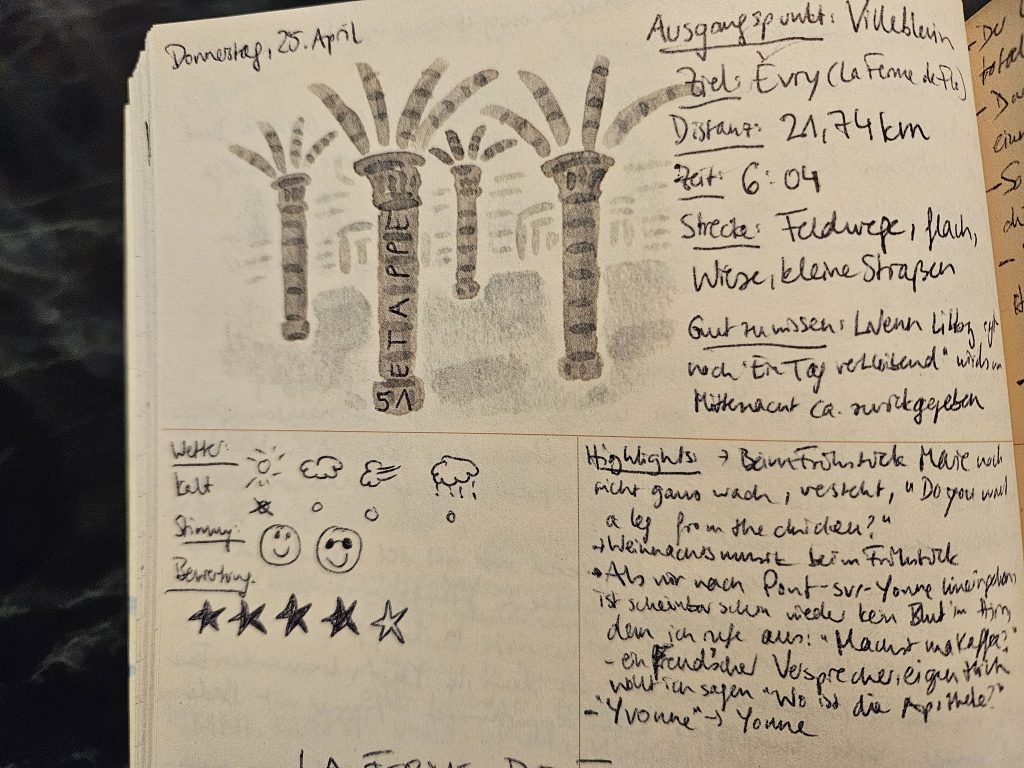 Donnerstag, 25. April
ETTAPPE
51
Ausgangspunkt: Villeblevin
Ziel: Évry (La Ferme de Flo)
Distanz: 21,74 km
Zeit: 6:04
Strecke: Feldwege, flach,
Wiese, kleine Straßen
Gut zu wissen: Wenn Libby
noch "Ein Tag verbleibend"
Mitternacht ca. zurückgegeben
Wetter:
kalt
Stimmung:
Bewertung:
Highlights: → Beim Frühstück Marie noch
nicht ganz wach, versteht, "Do you want
a leg from the chicken?"
→ Weihnachtsmusik beim Frühstück
→ Als wir nach Pont-sur-Yonne hineingehen
ist scheinbar schon wieder kein Blut im Hirn,
denn ich rufe aus: "Machst ma Kaffee?"
- ein Freud'scher Versprecher, eigentlich
wollt ich sagen "Wo ist die Apotheke?"
- "Yvonne" → Yonne
LA FERME DE
- Du
total
- Da
ein
- So
di
-